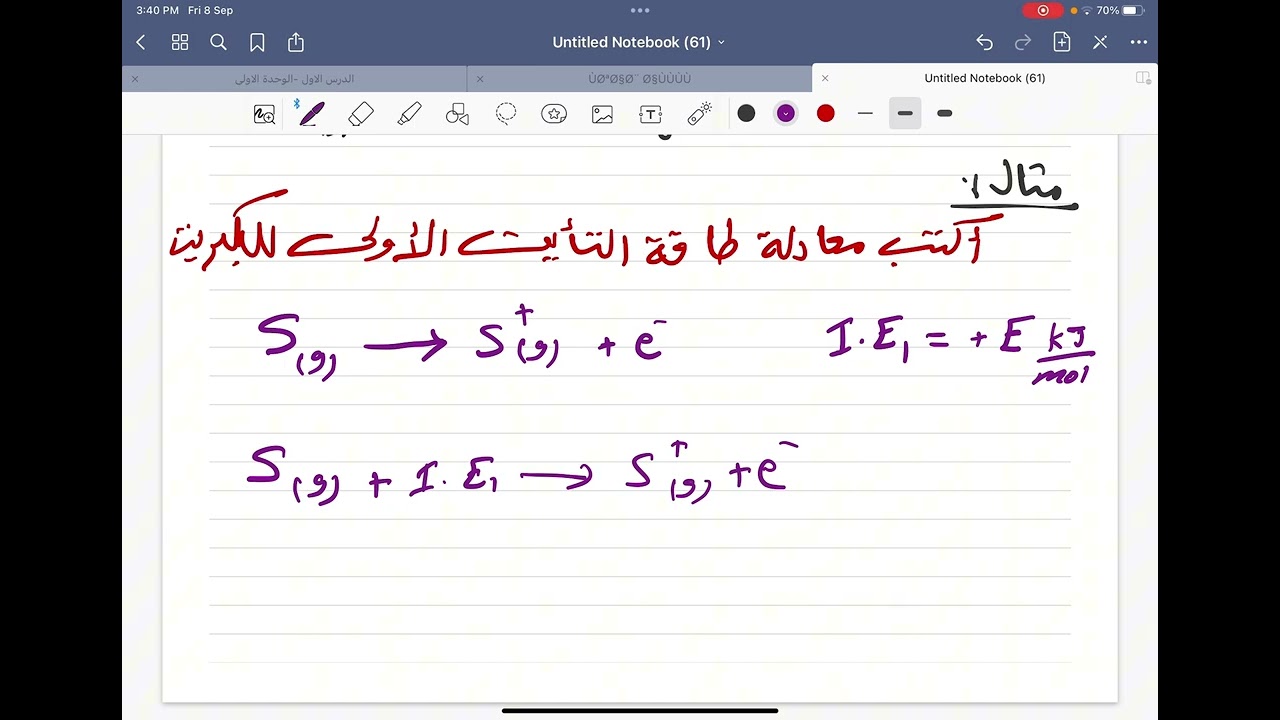 3:40 PM Fri 8 Sep
70%
Untitled Notebook (61)
الدرس الاول -الوحدة الاولى
Untitled Notebook (61)
مثال 1:
أكتب معادلة طاقة التأين الأولى للكبريت
S(g) → S⁺(g) + e⁻ I.E₁ = + E kJ/mol
S(g) + I.E₁ → S⁺(g) + e⁻